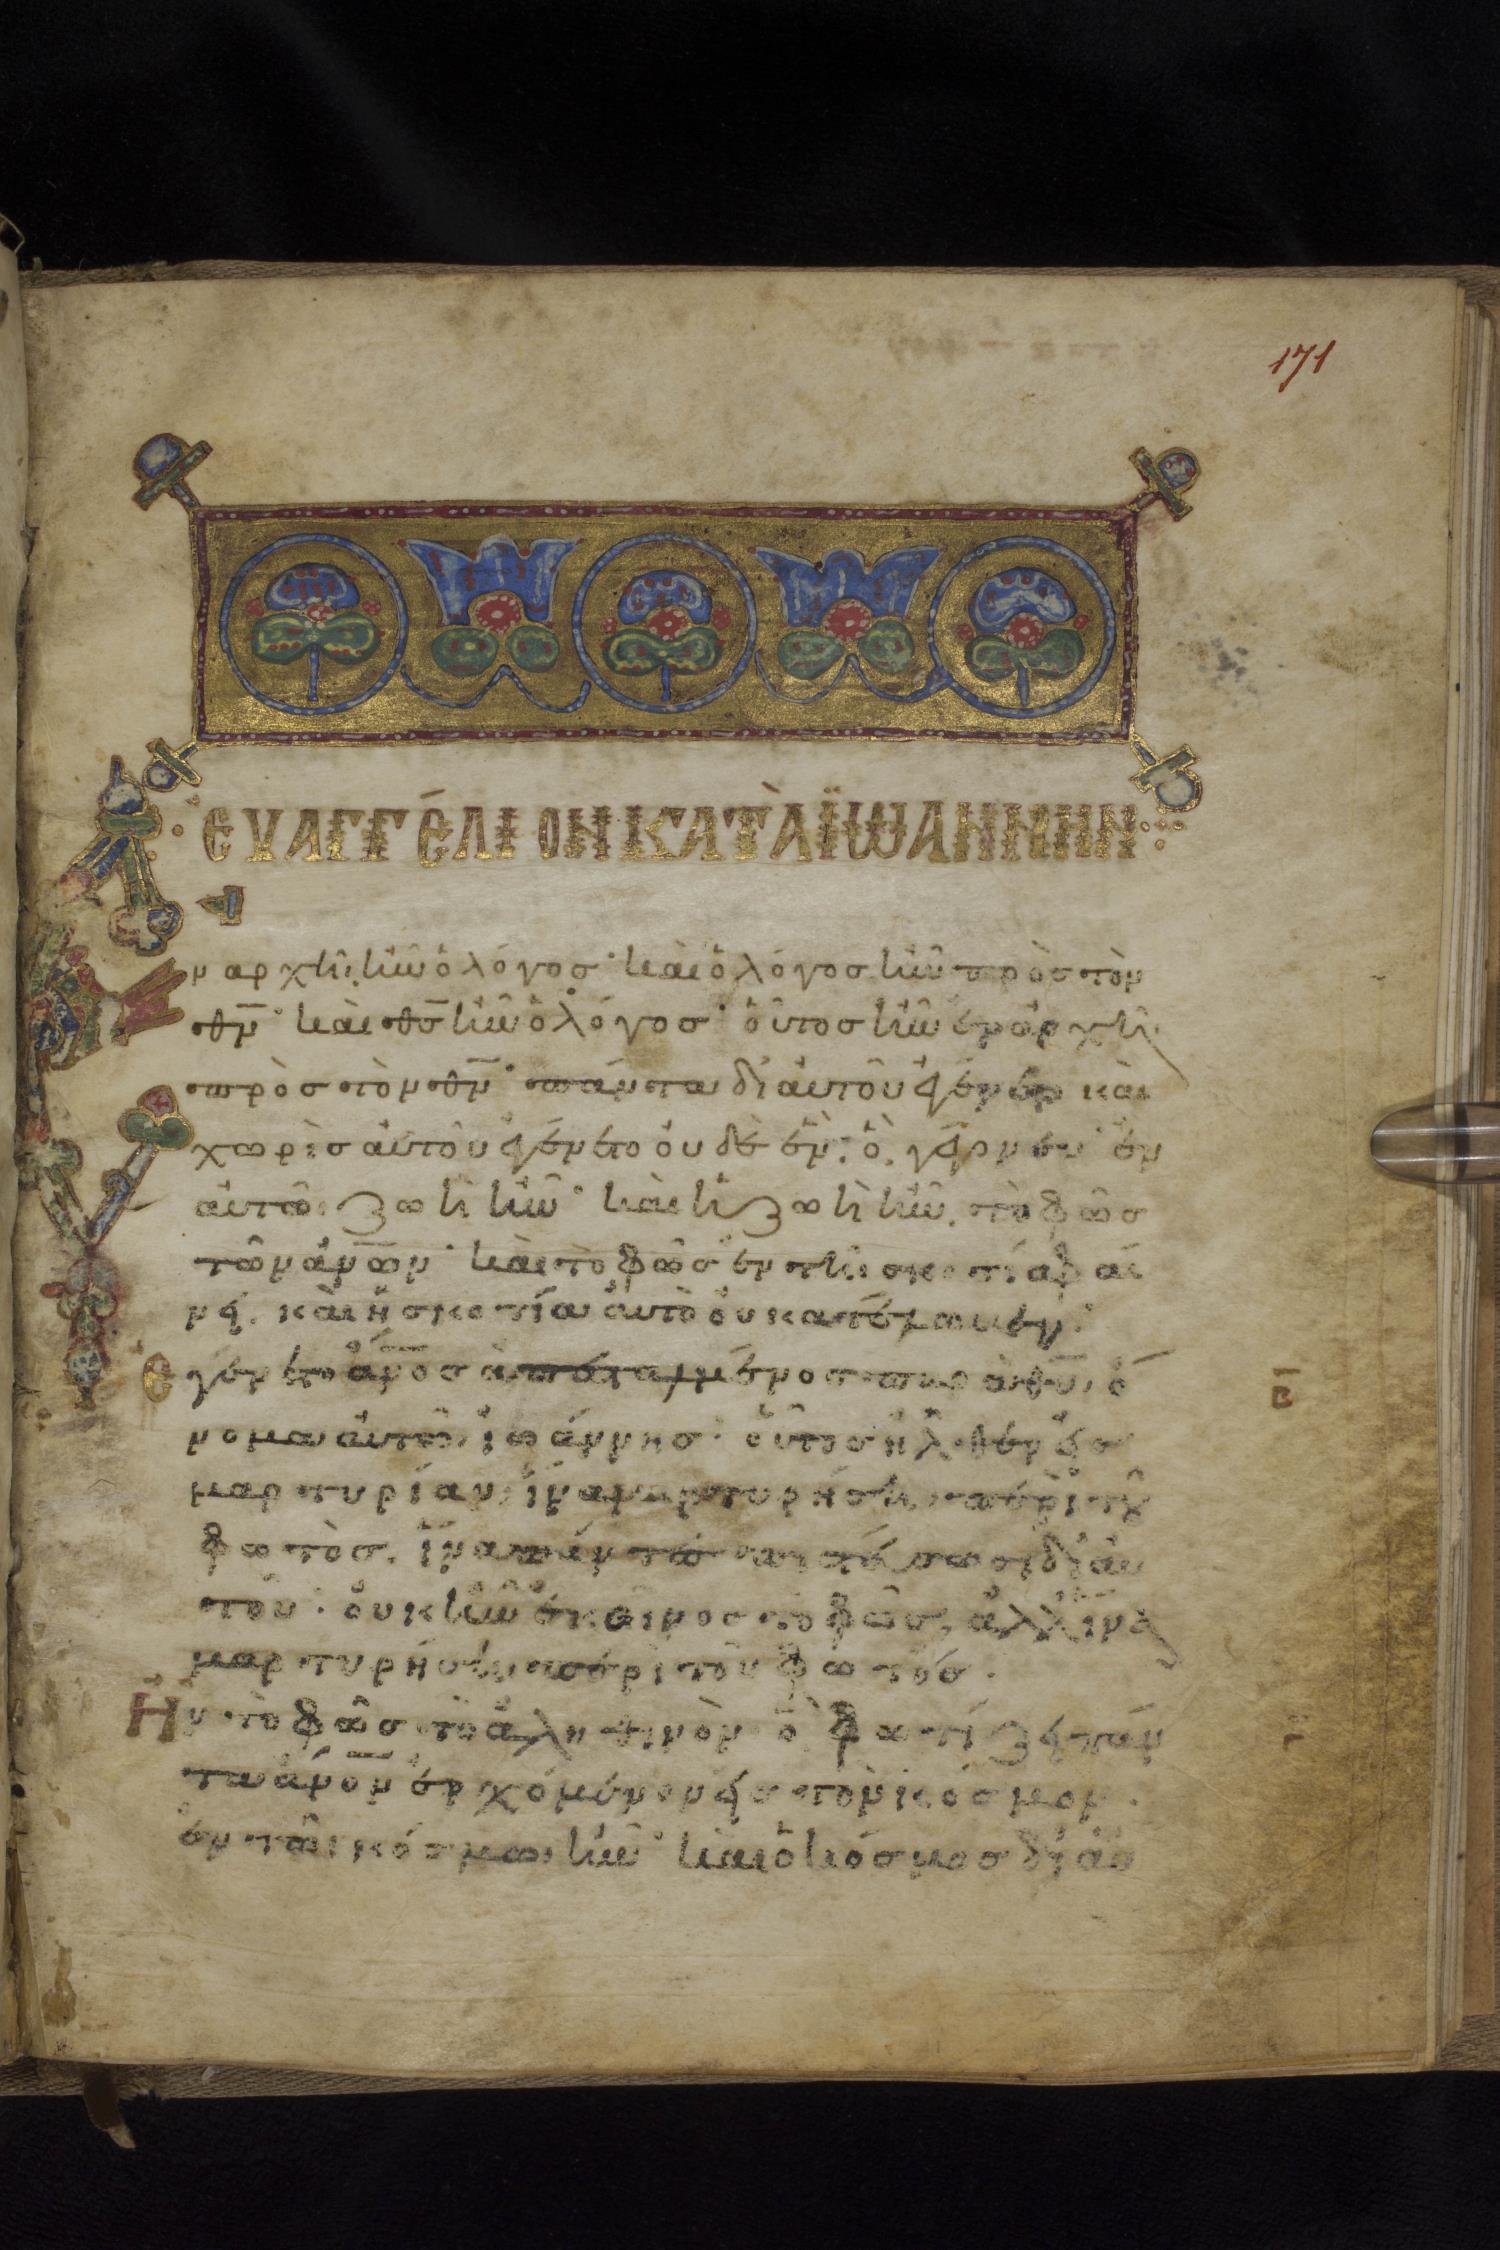 171
ΕΥΑΓΓΕΛΙΟΝ ΚΑΤᾺ ΪΩΑΝΝΗΝ
Ἐν ἀρχῆι ἦν ὁ λόγοσ· καὶ ὁ λόγοσ ἦν πρὸσ τὸν
θν̅· καὶ θσ̅ ἦν ὁ λόγοσ· οὗτοσ ἦν ἐν ἀρχῆι
πρὸσ τὸν θν̅· πάντα δι' αὐτοῦ ἐγένετο καὶ
χωρὶσ αὐτοῦ ἐγένετο οὐδὲ ἕν· ὃ γέγονεν· ἐν
αὐτῶι ζωὴ ἦν· καὶ ἡ ζωὴ ἦν τὸ φῶσ
τῶν ἀν̅ων· καὶ τὸ φῶσ ἐν τῆι σκοτία φαί
νει. καὶ ἡ σκοτία αὐτὸ οὐ κατέλαβεν·
Ἐγένετο ἄν̅οσ ἀπεσταλμένοσ παρὰ θυ̅, ὄ
β̅
νομα αὐτῶι ἰωάννησ· οὗτοσ ἦλθεν εἰσ
μαρτυρίαν, ἵνα μαρτυρήσηι περὶ τοῦ
φωτὸσ, ἵνα πάντεσ πιστεύσωσι δι' αὐ
τοῦ· οὐκ ἦν ἐκεῖνοσ τὸ φῶσ, ἀλλ' ἵνα
μαρτυρήσηι περὶ τοῦ φωτόσ.
Ἦν τὸ φῶσ τὸ ἀληθινὸν ὃ φωτίζει πάν
τα ἄν̅ον ἐρχόμενον εἰσ τὸν κόσμον.
ἐν τῶι κόσμωι ἦν· καὶ ὁ κόσμοσ δι' αὐ